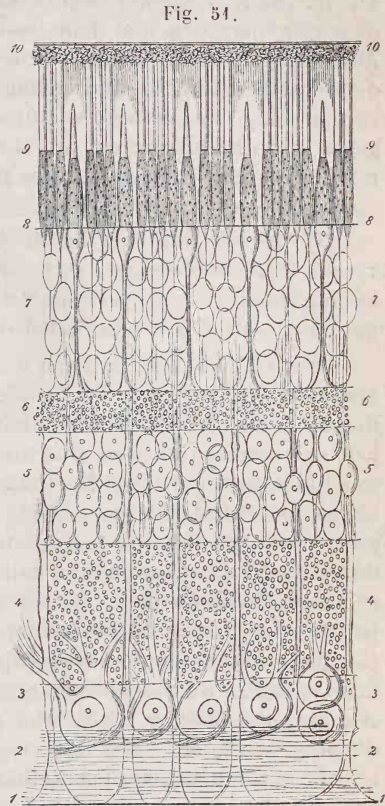 Fig. 51.
10 10
9 9
8 8
7 7
6 6
5 5
4 4
3 3
2 2
1 1